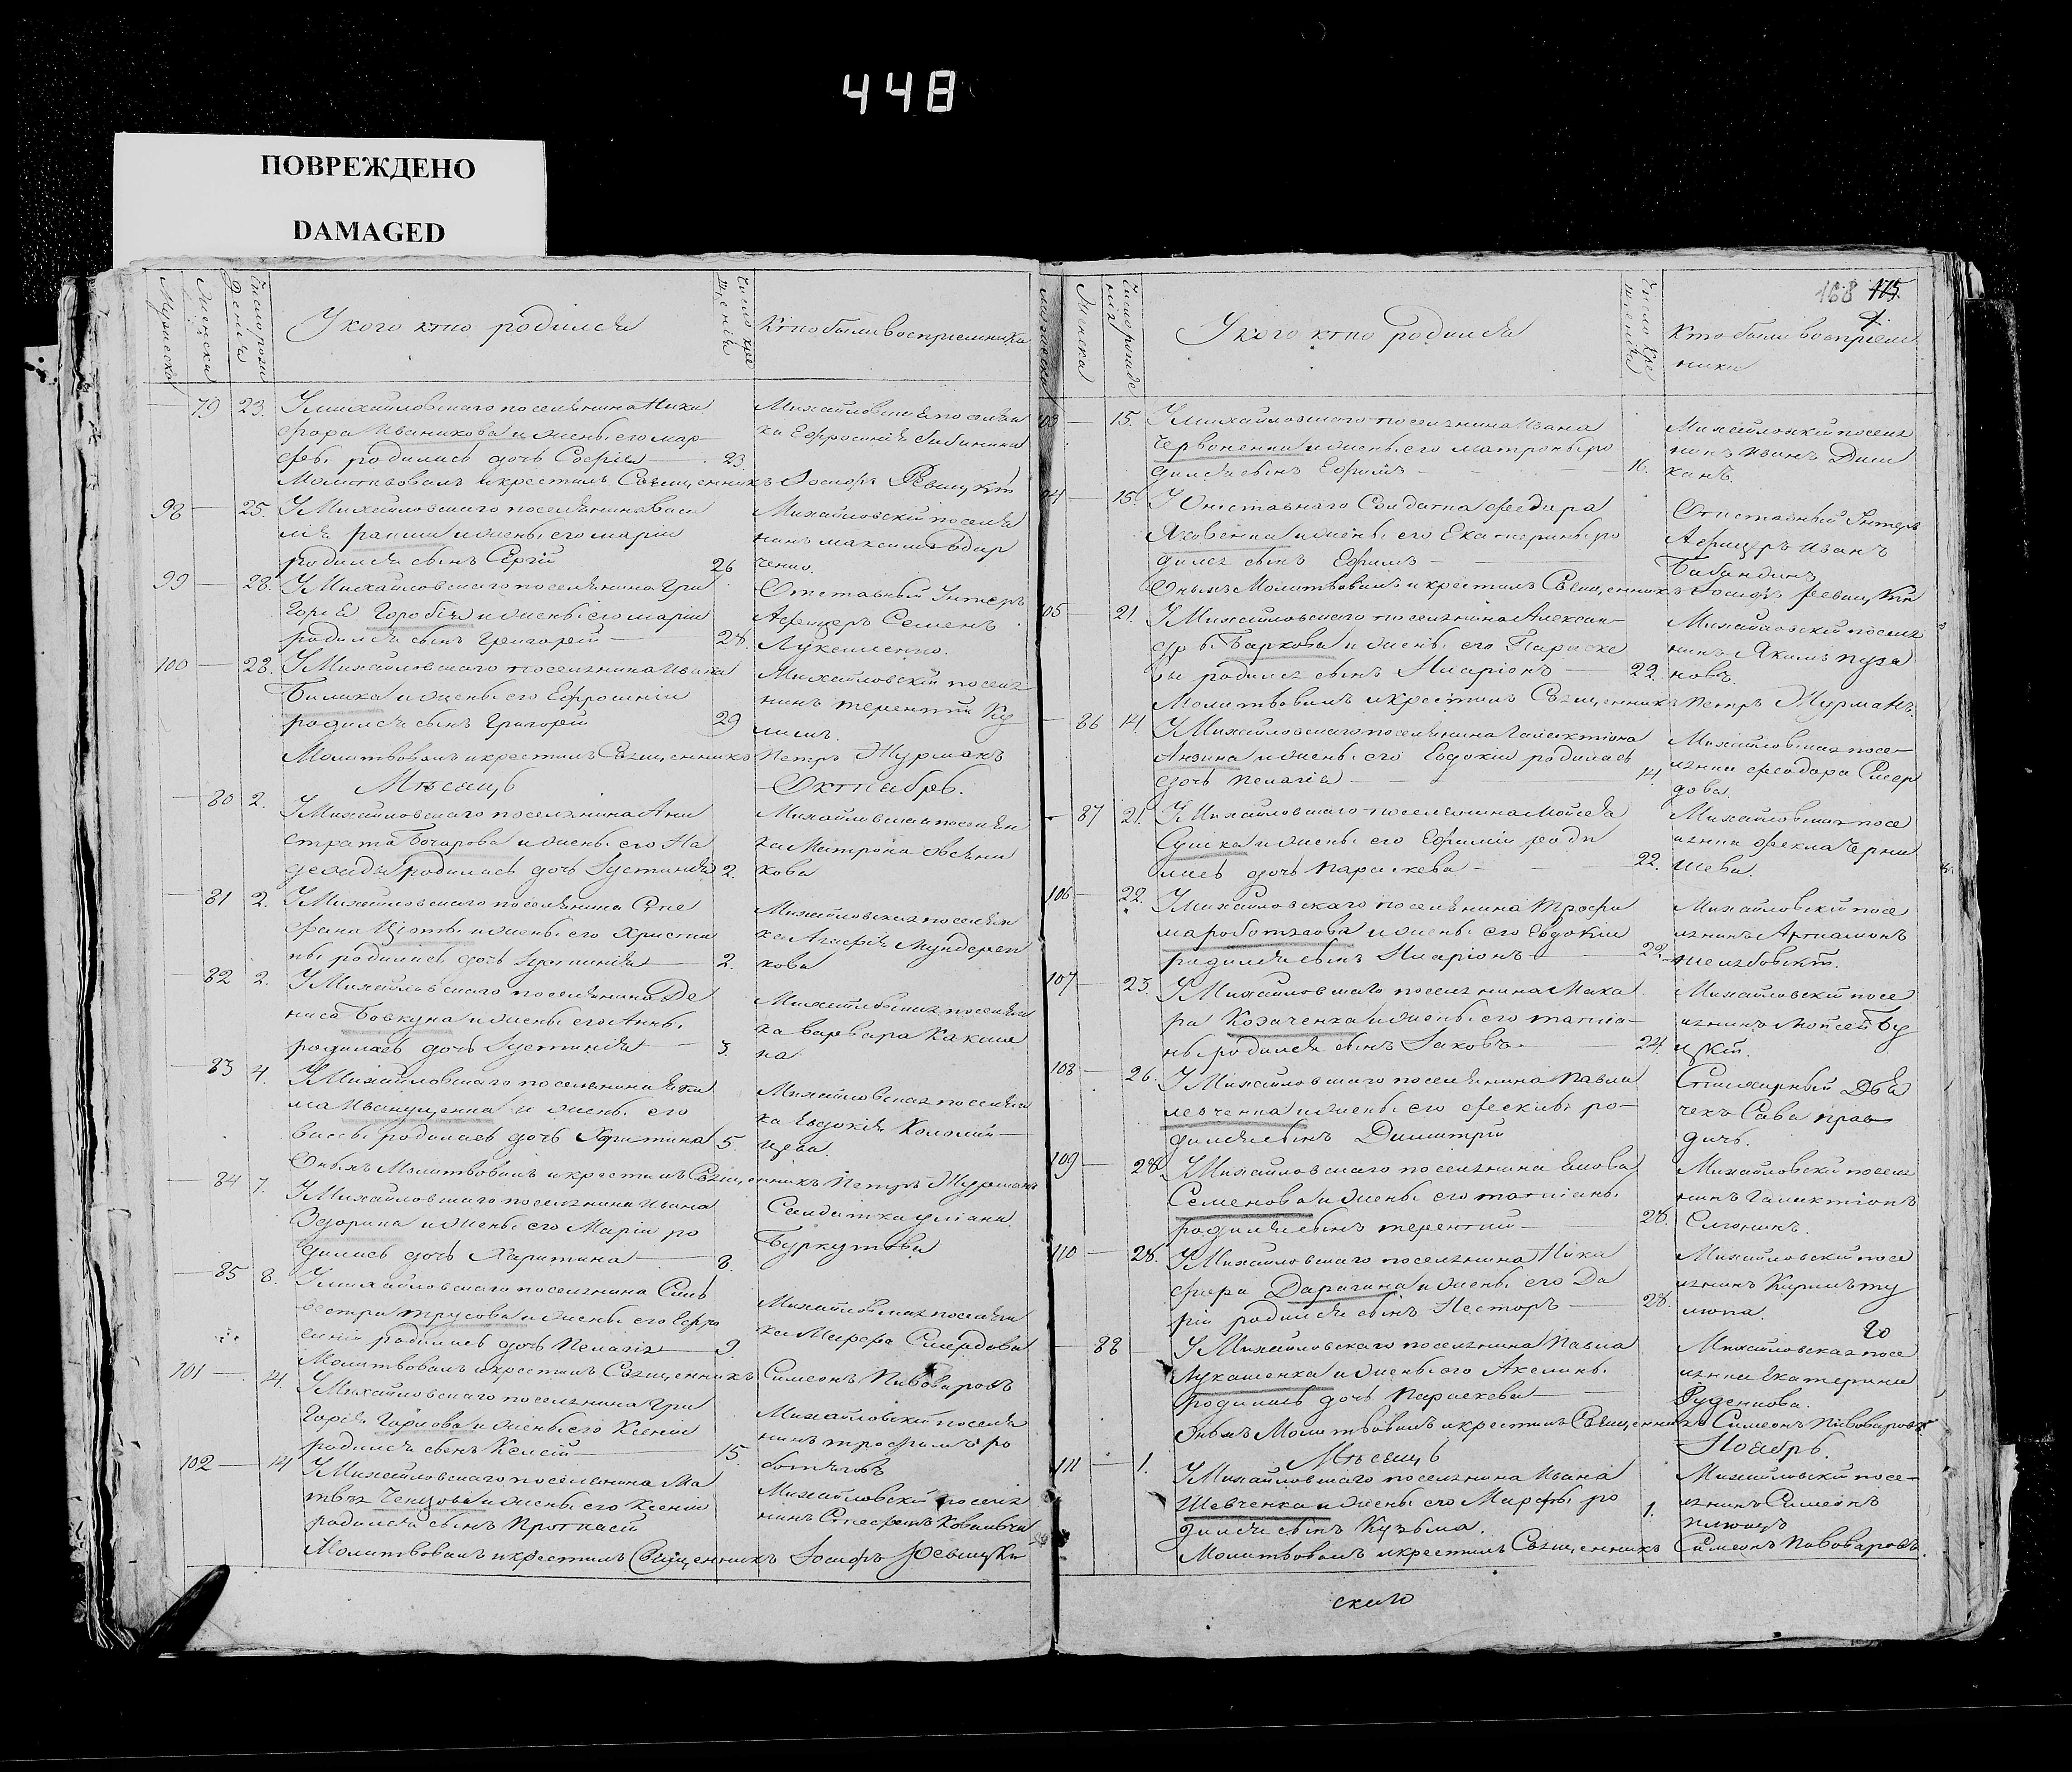 448
ПОВРЕЖДЕНО
DAMAGED
Мужеска
Женска
Число рожденія
У кого кто родился
Число крещенія
Кто были восприемники
79 23. У михайловскаго поселянина Ники
фора Иваникова и жены его мар
фы родилась дочь Софія 23.
Михайловская поселян
ка Ефросинія
Молитвовалъ и крестилъ Священникъ Іосифъ Ревицкій
98 25. У Михайловскаго поселянина Васи
лія и жены его маріи
родился сынъ Сергій 26
Михайловскій поселя
нинъ максимъ
ченко.
99 28. У Михайловскаго поселянина Гри
горія Горобця и жены его маріи
родился сынъ Григорій 28.
Отставный Унтеръ
Афицеръ Семенъ
Лукашенко.
100 28. У Михайловскаго поселянина Ивана
Билика и жены его Ефросиніи
родился сынъ Григорій 29
Михайловскій поселя
нинъ терентій Ку
лишъ.
Молитвовалъ и крестилъ Священникъ Петръ Журманъ
Мѣсяцъ Октябрь.
80 2. У Михайловскаго поселянина Ани
страта Бочарова и жены его На
дежды родилась дочь Іустинія 2.
Михайловская поселян
ка Матрона Овсяни
кова
81 2. У Михайловскаго поселянина Сте
фана и жены его Христи
ны родилась дочь Іустинія 2.
Михайловская поселян
ка Агафія
кова
82 2. У Михайловскаго поселянина Де
ниса Бовкуна и жены его Анны
родилась дочь Іустинія 3.
Михайловская поселян
ка варвара
на
83 4. У Михайловскаго поселянина
Иванущенка и жены его
родилась дочь Харитина 5.
Михайловская поселян
ка Евдокія Коломій
цева.
Оныхъ Молитвовалъ и крестилъ Священникъ Петръ Журманъ
84 7. У Михайловскаго поселянина Ивана
и жены его Маріи ро
дилась дочь Харитина 8.
Салдатка уліана
Буркутова
85 8. У михайловскаго поселянина Силь
вестра трусова и жены его Ефро
синіи родилась дочь Пелагія 9.
Михайловская поселян
ка Марфа Смердова
Молитвовалъ и крестилъ Священникъ Симеонъ Пивоваровъ
101 14. У Михайловскаго поселянина Гри
горія Горлова и жены его Ксеніи
родился сынъ 15.
Михайловскій поселя
нинъ трофимъ ро
ботяговъ
102 14 У Михайловскаго поселянина Ма
твея Ченцова и жены его Ксеніи
родился сынъ Протасій
Михайловскій поселя
нинъ Стефанъ
Молитвовалъ и крестилъ Священникъ Іосифъ Ревицкій
168 175
Мужеска
Женска
Число рожденія
У кого кто родился
Число крещенія
Кто были воспріем
ники
103 15. У Михайловскаго поселянина Ивана
Червоненка и жены его матроны ро
дился сынъ Ефимъ 16.
Михайловскій поселя
нинъ Иванъ
канъ.
104 15. У Отставнаго Солдата Федора
Яковенка и жены его Екатерины ро
дился сынъ Ефимъ
Отставный Унтеръ
Афицеръ Иванъ
Бабандинъ
Оныхъ Молитвовалъ и крестилъ Священникъ Іосифъ Ревицкій
105 21. У Михайловскаго поселянина Алексан
дра Баркова и жены его Параске
вы родился сынъ Иларіонъ 22.
Михайловскій поселя
нинъ Якимъ пуза
новъ.
Молитвовалъ и крестилъ Священникъ Петръ Журманъ.
86 14. У Михайловскаго поселянина Галактіона
Анзина и жены его Евдокіи родилась
дочь Пелагія 14.
Михайловская посе
лянка феодора Смер
дова.
87 21. У Михайловскаго поселянина Мойсея
и жены его Ефиміи роди
лась дочь Параскева 22.
Михайловская посе
лянка Фекла Черни
шева.
106 22. У михайловскаго поселянина Трофи
ма роботягова и жены его Евдокіи
родился сынъ Иларіонъ 22.
Михайловскій посе
лянинъ Артамонъ
107 23. У Михайловскаго поселянина Мака
ра Козаченка и жены его татіа
ны родился сынъ Іаковъ 24.
Михайловскій посе
лянинъ Мойсей Бу
цкій.
108 26. У Михайловскаго поселянина Павла
левченка и жены его ро
дился сынъ Димитрій
Сава прав
дичь.
109 28 У Михайловскаго поселянина
Семенова и жены его татіаны
родился сынъ терентій 28.
Михайловскій поселя
нинъ галактіонъ
110 28. У Михайловскаго поселянина Ники
фора Дарагина и жены его Да
ріи родился сынъ Несторъ 28.
Михайловскій посе
лянинъ
88 У Михайловскаго поселянина Павла
Лукашенка и жены его Акелины
родилась дочь Параскева
Михайловская посе
лянка Екатерина
Руденкова.
Оныхъ Молитвовалъ и крестилъ Священникъ Симеонъ Пивоваровъ
Мѣсяцъ Ноябрь.
111 1. У Михайловскаго поселянина Ивана
Шевченка и жены его Марфы ро
дился сынъ Кузьма. 1.
Михайловскій посе
лянинъ Симеонъ
Молитвовалъ и крестилъ Священникъ Симеонъ Пивоваровъ.
скаго